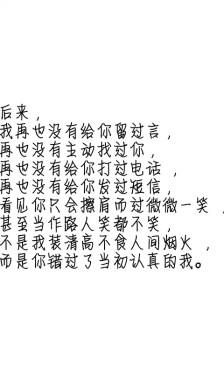 后来，
我再也没有给你留过言，
再也没有主动找过你，
再也没有给你打过电话，
再也没有给你发过短信，
看见你只会擦肩而过微微一笑，
甚至当作路人笑都不笑，
不是我装清高不食人间烟火，
而是你错过了当初认真的我。